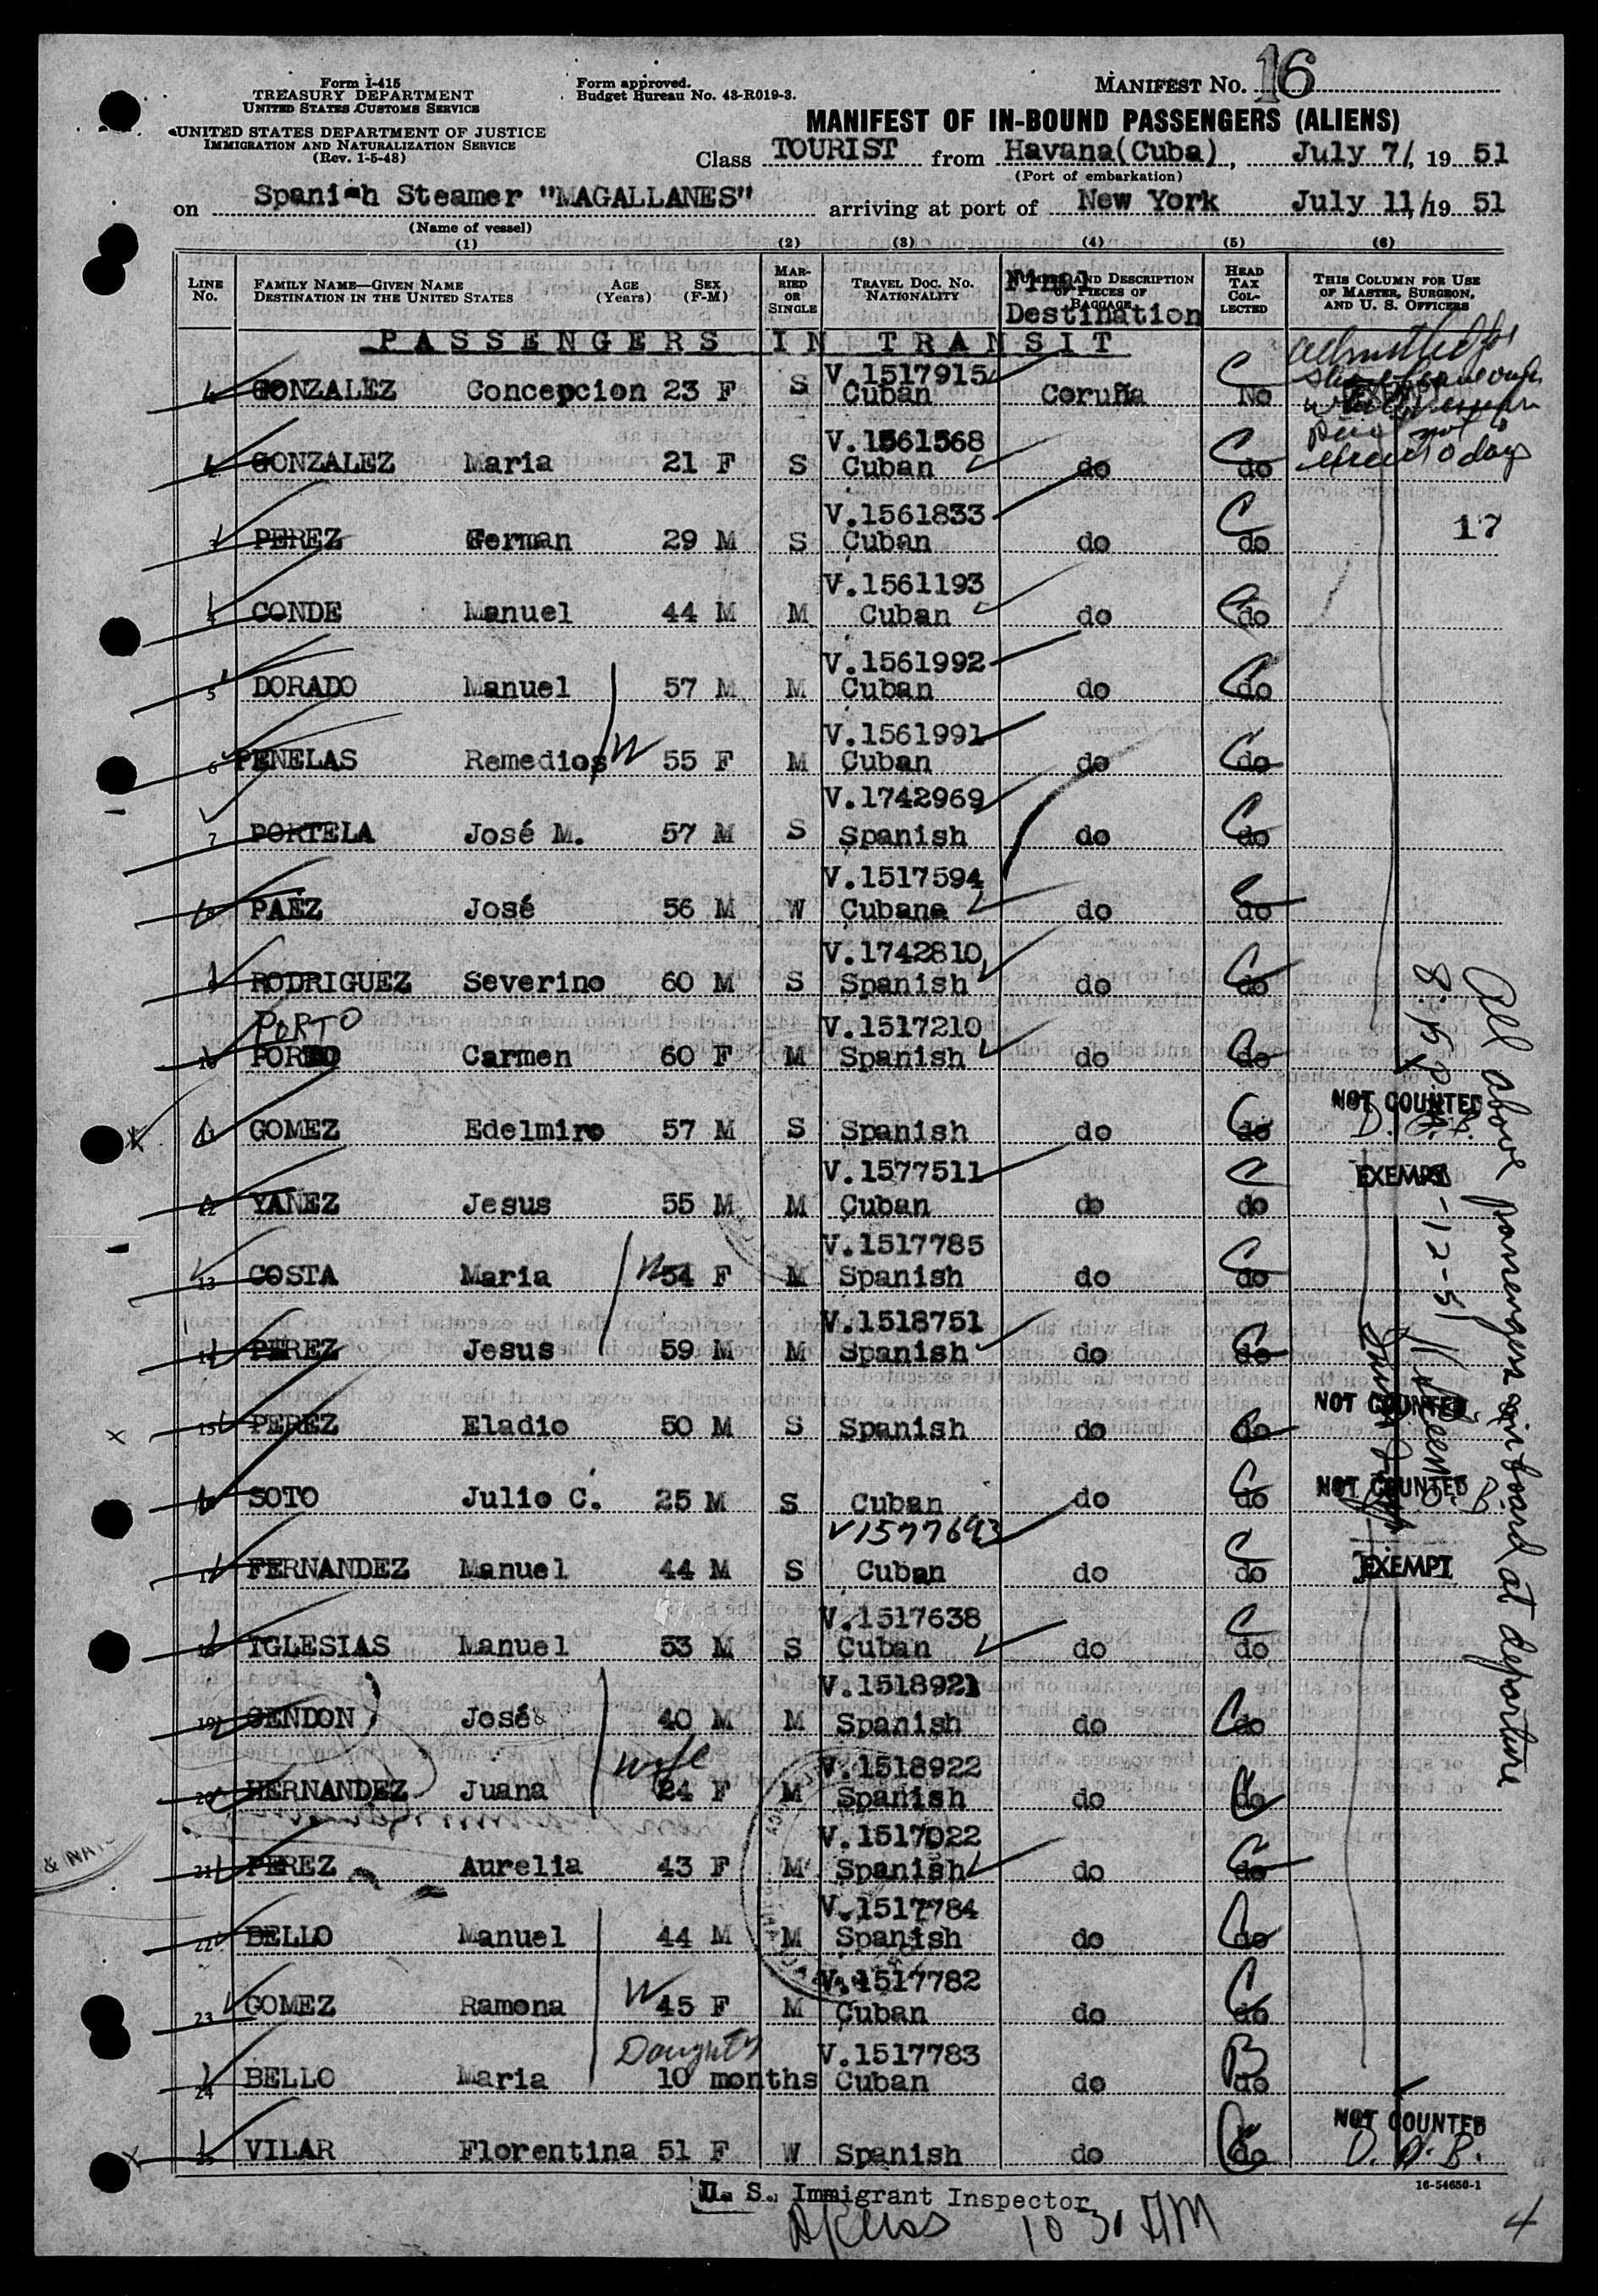 Form I-415
TREASURY DEPARTMENT
UNITED STATES CUSTOMS SERVICE
UNITED STATES DEPARTMENT OF JUSTICE
IMMIGRATION AND NATURALIZATION SERVICE
(Rev. 1-5-48)
Form approved.
Budget Bureau No. 43-R019-3.
MANIFEST NO. 16
MANIFEST OF IN-BOUND PASSENGERS (ALIENS)
Class TOURIST from Havana(Cuba), July 7/, 19 51
(Port of embarkation)
on Spanish Steamer "MAGALLANES" arriving at port of New York July 11,/19 51
(Name of vessel)
(1) (2) (3) (4) (5) (6)
LINE NO. FAMILY NAME—GIVEN NAME DESTINATION IN THE UNITED STATES AGE (Years) SEX (F-M) MARRIED OR SINGLE TRAVEL DOC. NO. NATIONALITY NUMBER AND DESCRIPTION OF PIECES OF BAGGAGE HEAD TAX COLLECTED THIS COLUMN FOR USE OF MASTER, SURGEON, AND U. S. OFFICERS
Final Destination
PASSENGERS IN TRANSIT
admitted for
V.1517915
GONZALEZ Concepcion 23 F S Cuban Coruña C No
not to
V.1561568
GONZALEZ Maria 21 F S Cuban do C do exceed 10 days
V.1561833
PEREZ German 29 M S Cuban do C do 17
V.1561193
4 CONDE Manuel 44 M M Cuban do C do
V.1561992
5 DORADO Manuel 57 M M Cuban do C do
V.1561991
6 PENELAS Remedios W 55 F M Cuban do C do
V.1742969
7 PORTELA José M. 57 M S Spanish do C do
V.1517594
8 PAEZ José 56 M W Cubana do C do
V.1742810
RODRIGUEZ Severino 60 M S Spanish do C do
PORTO V.1517210
10 PORTO Carmen 60 F M Spanish do C do
NOT COUNTED
11 GOMEZ Edelmiro 57 M S Spanish do C do D. H. B.
V.1577511 EXEMPT
12 YANEZ Jesus 55 M M Cuban do C do
V.1517785
13 COSTA Maria W 54 F M Spanish do C do
V.1518751
14 PEREZ Jesus 59 M M Spanish do C do
NOT COUNTED
15 PEREZ Eladio 50 M S Spanish do C do
NOT COUNTED
SOTO Julio C. 25 M S Cuban do C do
V1577693
17 FERNANDEZ Manuel 44 M S Cuban do C do EXEMPT
V.1517638
18 IGLESIAS Manuel 53 M S Cuban do C do
V.1518921
19 SENDON José 40 M M Spanish do C do
wife V.1518922
20 HERNANDEZ Juana 24 F M Spanish do C do
V.1517022
21 PEREZ Aurelia 43 F M Spanish do C do
V.1517784
22 BELLO Manuel 44 M M Spanish do C do
V.1517782
23 GOMEZ Ramona W 45 F M Cuban do C do
V.1517783
24 BELLO Maria 10 months Cuban do B do
NOT COUNTED
25 VILAR Florentina 51 F W Spanish do C do D. H. B.
All above passengers on board at departure
8:15 P.
-12-51
U. S. Immigrant Inspector
10 30 AM
16-54650-1
4